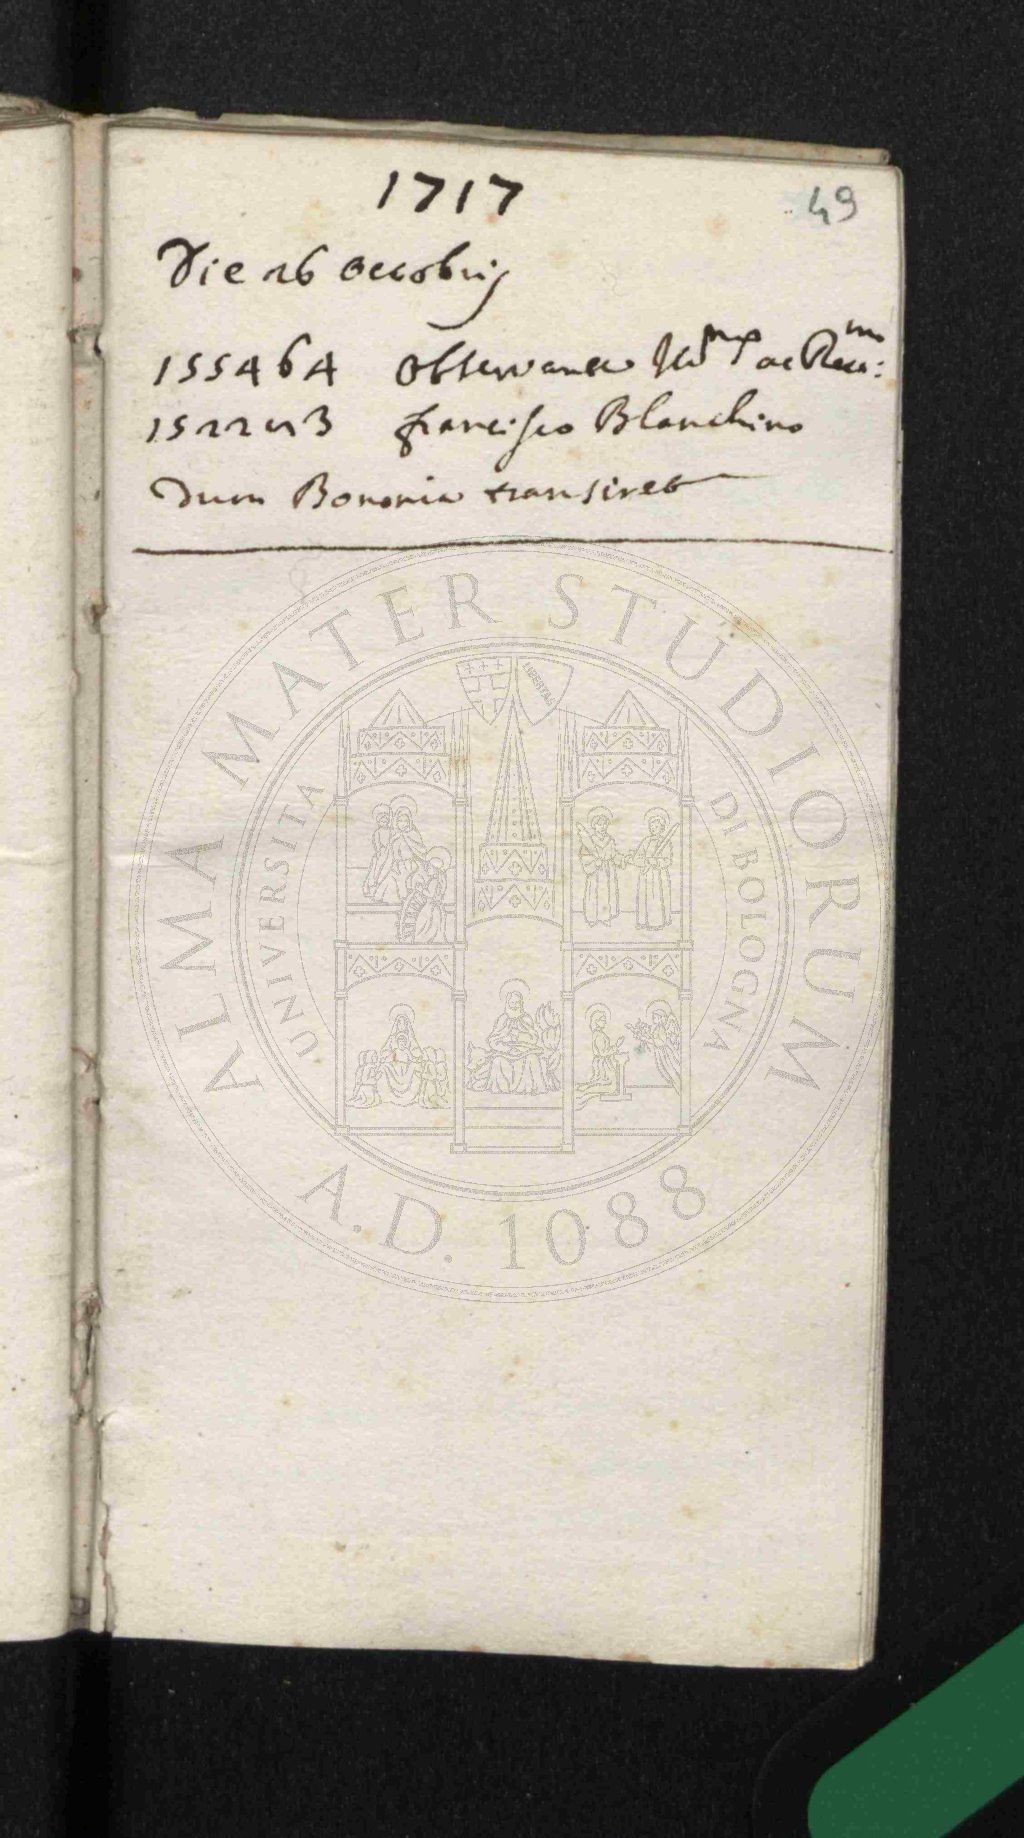 1717
49
Die 26 Octobris
155464 Observante Ill.mo ac Rev.mo
152243 Francisco Blanchino
dum Bononia transiret
ALMA MATER STUDIORUM
UNIVERSITA DI BOLOGNA
LIBERTAS
A.D. 1088